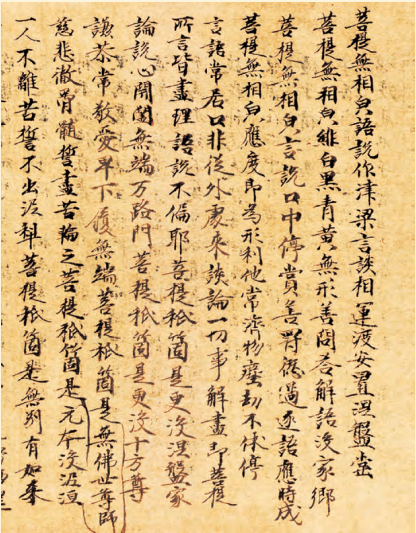 菩提無相自語說作津梁言談相運渡安置涅盤堂
菩提無相自緋白黑青黃無形善問答解語没家鄉
菩提無相自言說口中停賞善野僁過逐語應時成
菩提無相自應度即為形利他常濟物塵劫不休停
言語常居口非從外處來談論一切事解盡即菩提
所言皆盡理語說不偏耶菩提秖箇是更没涅盤家
論說心開闡無端万路門菩提秖箇是更没十方尊
謙恭常敬愛卑下復無端菩提秖箇是無佛世尊師
慈悲徹骨髓誓盡苦輪之菩提秖箇是元本没涅洹
一人不離苦誓不出涅槃菩提秖箇是無別有如來